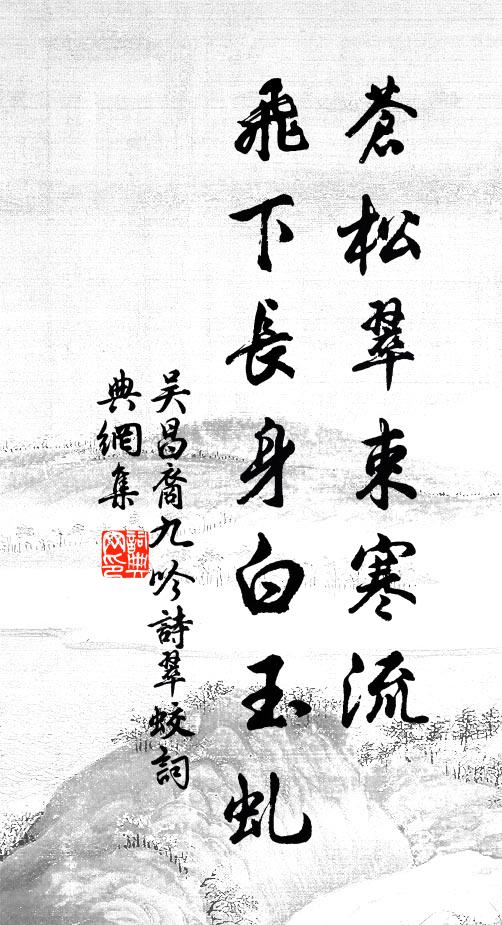 蒼松翠束寒流
飛下長身白玉虬
吴昌裔九吟詩翠蛟詞
典網集
詞典
网印